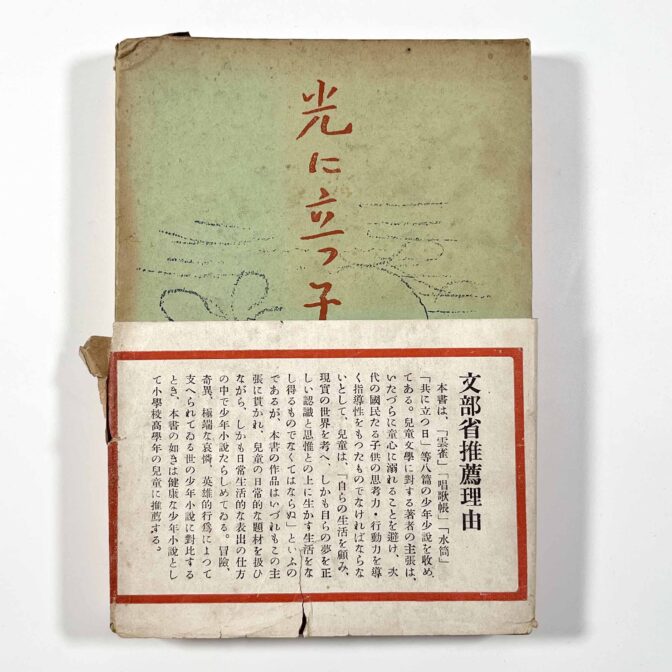 光に立つ子
文部省推薦理由
本書は、「雲雀」「唱歌帳」「水筒」
「共に立つ日」等八篇の少年少説を收め
てある。兒童文學に對する著者の主張は、
いたづらに童心に溺れることを避け、次
代の國民たる子供の思考力・行動力を導
く指導性をもつたものでなければならな
いとして、兒童は、「自らの生活を顧み、
現實の世界を考へ、しかも自らの夢を正
しい認識と思惟との上に生かす生活をな
し得るものでなくてはならぬ」といふの
であるが、本書の作品はいづれもこの主
張に貫かれ、兒童の日常的な題材を扱ひ
ながら、しかも日常生活的な表出の仕方
の中で少年小說たらしめてゐる。冒險、
奇異、極端な哀憐、英雄的行爲によつて
支へられてゐる世の少年小說に對比する
とき、本書の如きは健康な少年小說とし
て小學校高學年の兒童に推薦する。